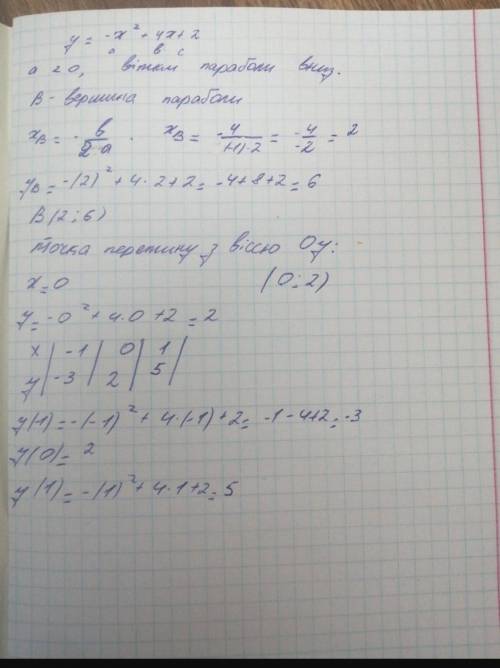 y = -x² + 4x + 2
a в c
a < 0, вітки параболи вниз.
В - вершина параболи
x_B = - в/(2·a) . x_B = -4/((-1)·2) = -4/-2 = 2
y_B = -(2)² + 4·2 + 2 = -4+8+2 = 6
В (2 ; 6)
Точка перетину з віссю Oy:
x = 0 (0 ; 2)
y = -0² + 4·0 + 2 = 2
x | -1 | 0 | 1 |
y | -3 | 2 | 5 |
y(-1) = -(-1)² + 4·(-1) + 2 = -1 - 4 + 2 = -3
y(0) = 2
y(1) = -(1)² + 4·1 + 2 = 5